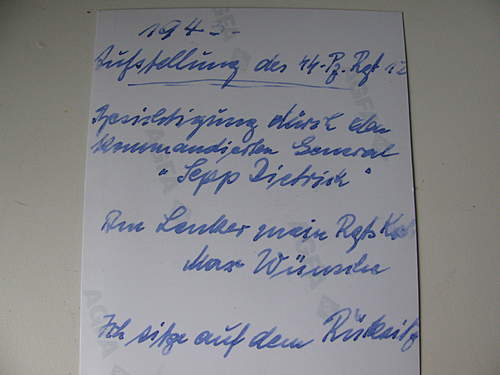 1943.
Aufstellung des SS-Pz. Rgt 12
Besichtigung durch den
Kommandierten General
"Sepp Dietrich"
Am Lenker mein Rgts Kdr
Max Wünsche
Ich sitze auf dem Rücksitz
AGFA
AGFA
AGFA